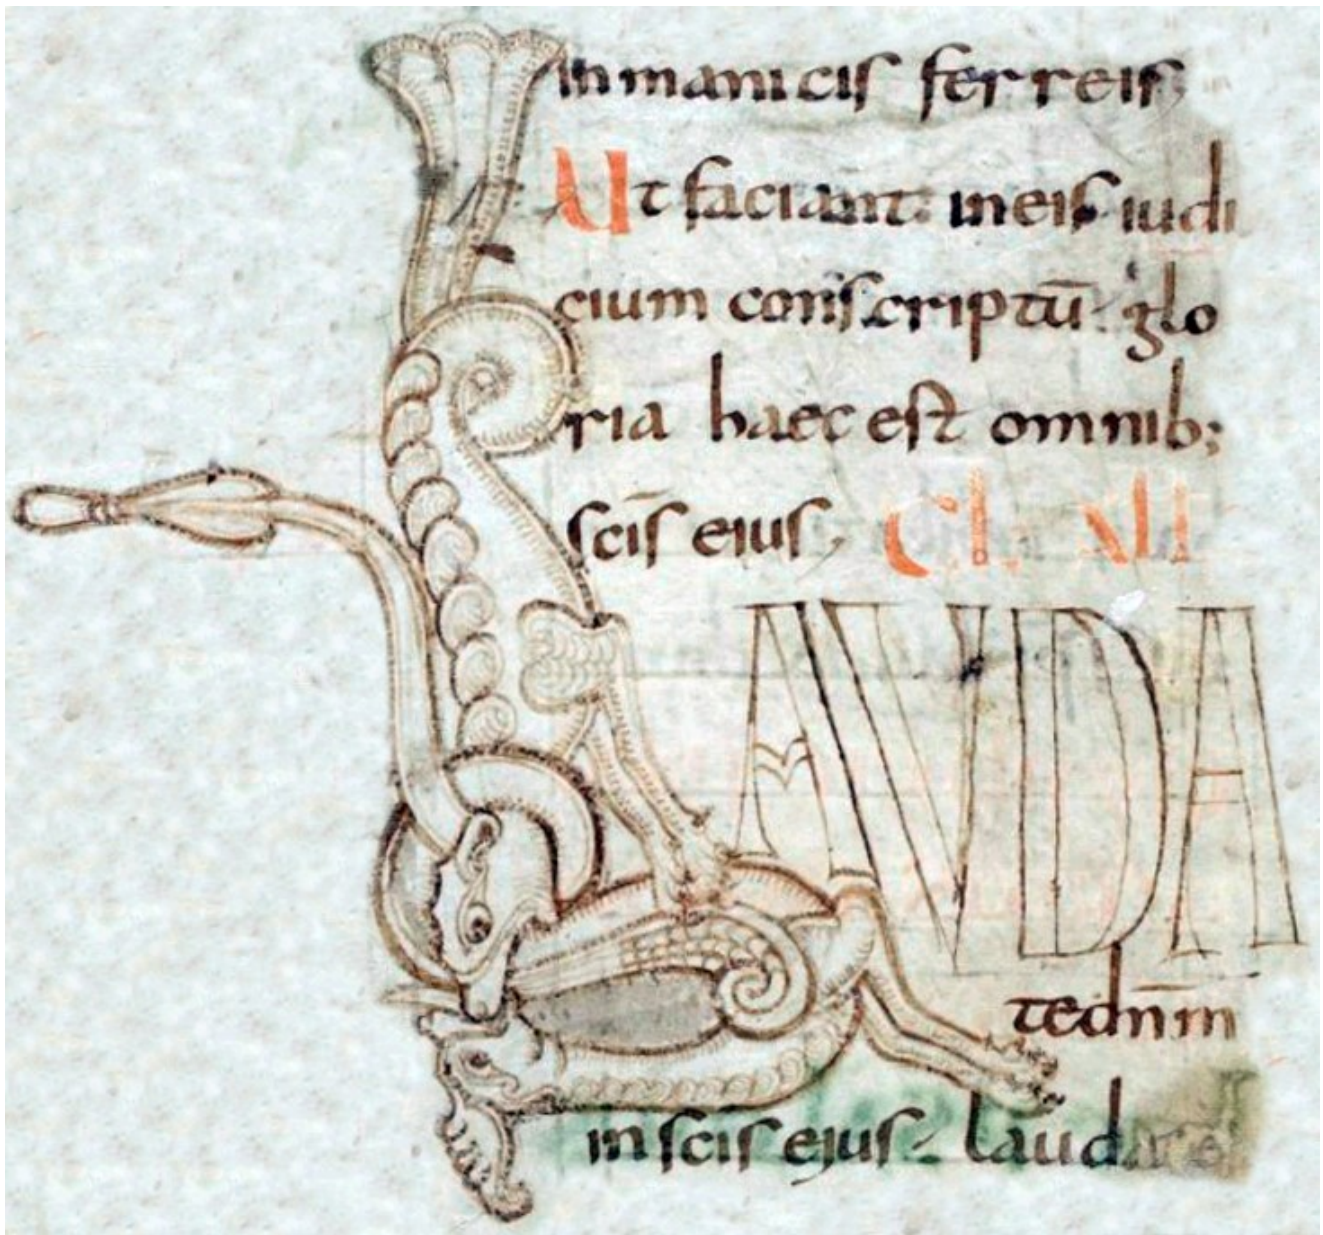 in manicis ferreis;
Ut faciant in eis iudi
cium conscriptū. glo
ria haec est omnib;
scīs eius. CL. ALL
LAUDA
te dnm̄
in scīs ejus. laudate